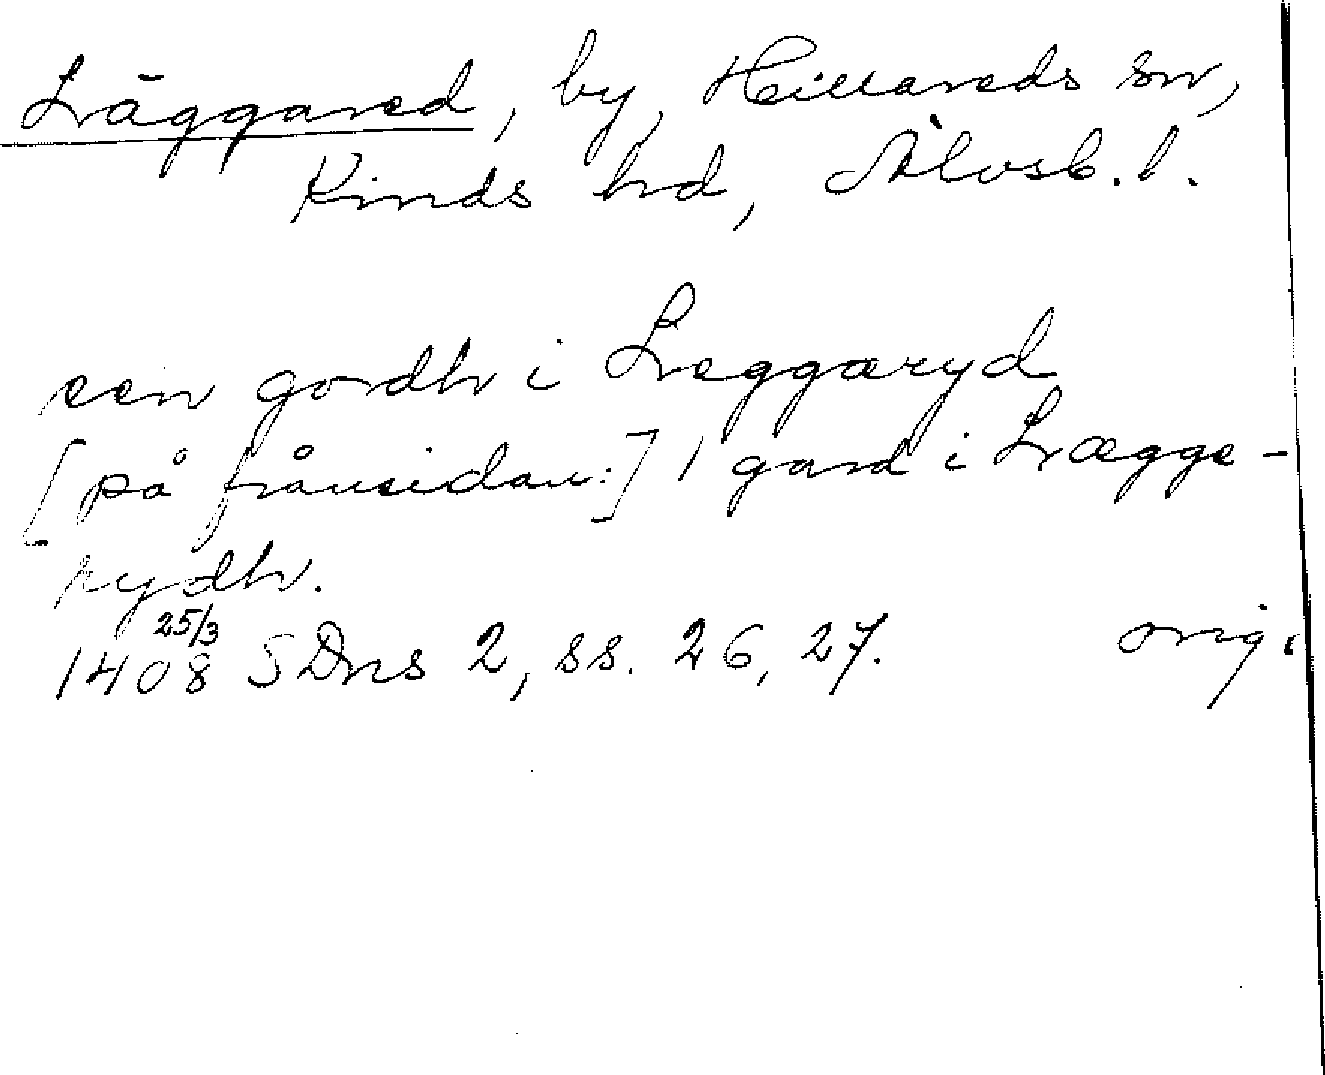 Läggared, by, Hillareds sn,
Kinds hd, Älvsb. l.
een gordh i Leggaryd
[på frånsidan:] 1 gard i Lægge-
rydh.
1408 25/3 SDns 2, ss. 26, 27. orig.